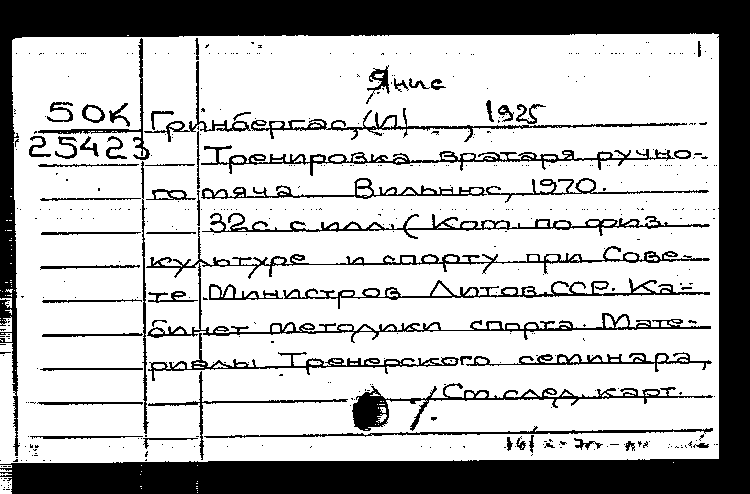 Янис
50К Гринбергас, (И) , 1925
25423 Тренировка вратаря ручно-
го мяча Вильнюс, 1970.
32с. с илл. (Ком. по физ.
культуре и спорту при Сове-
те Министров Литов. ССР. Ка-
бинет методики спорта. Мате-
риалы Тренерского семинара,
См. след. карт.